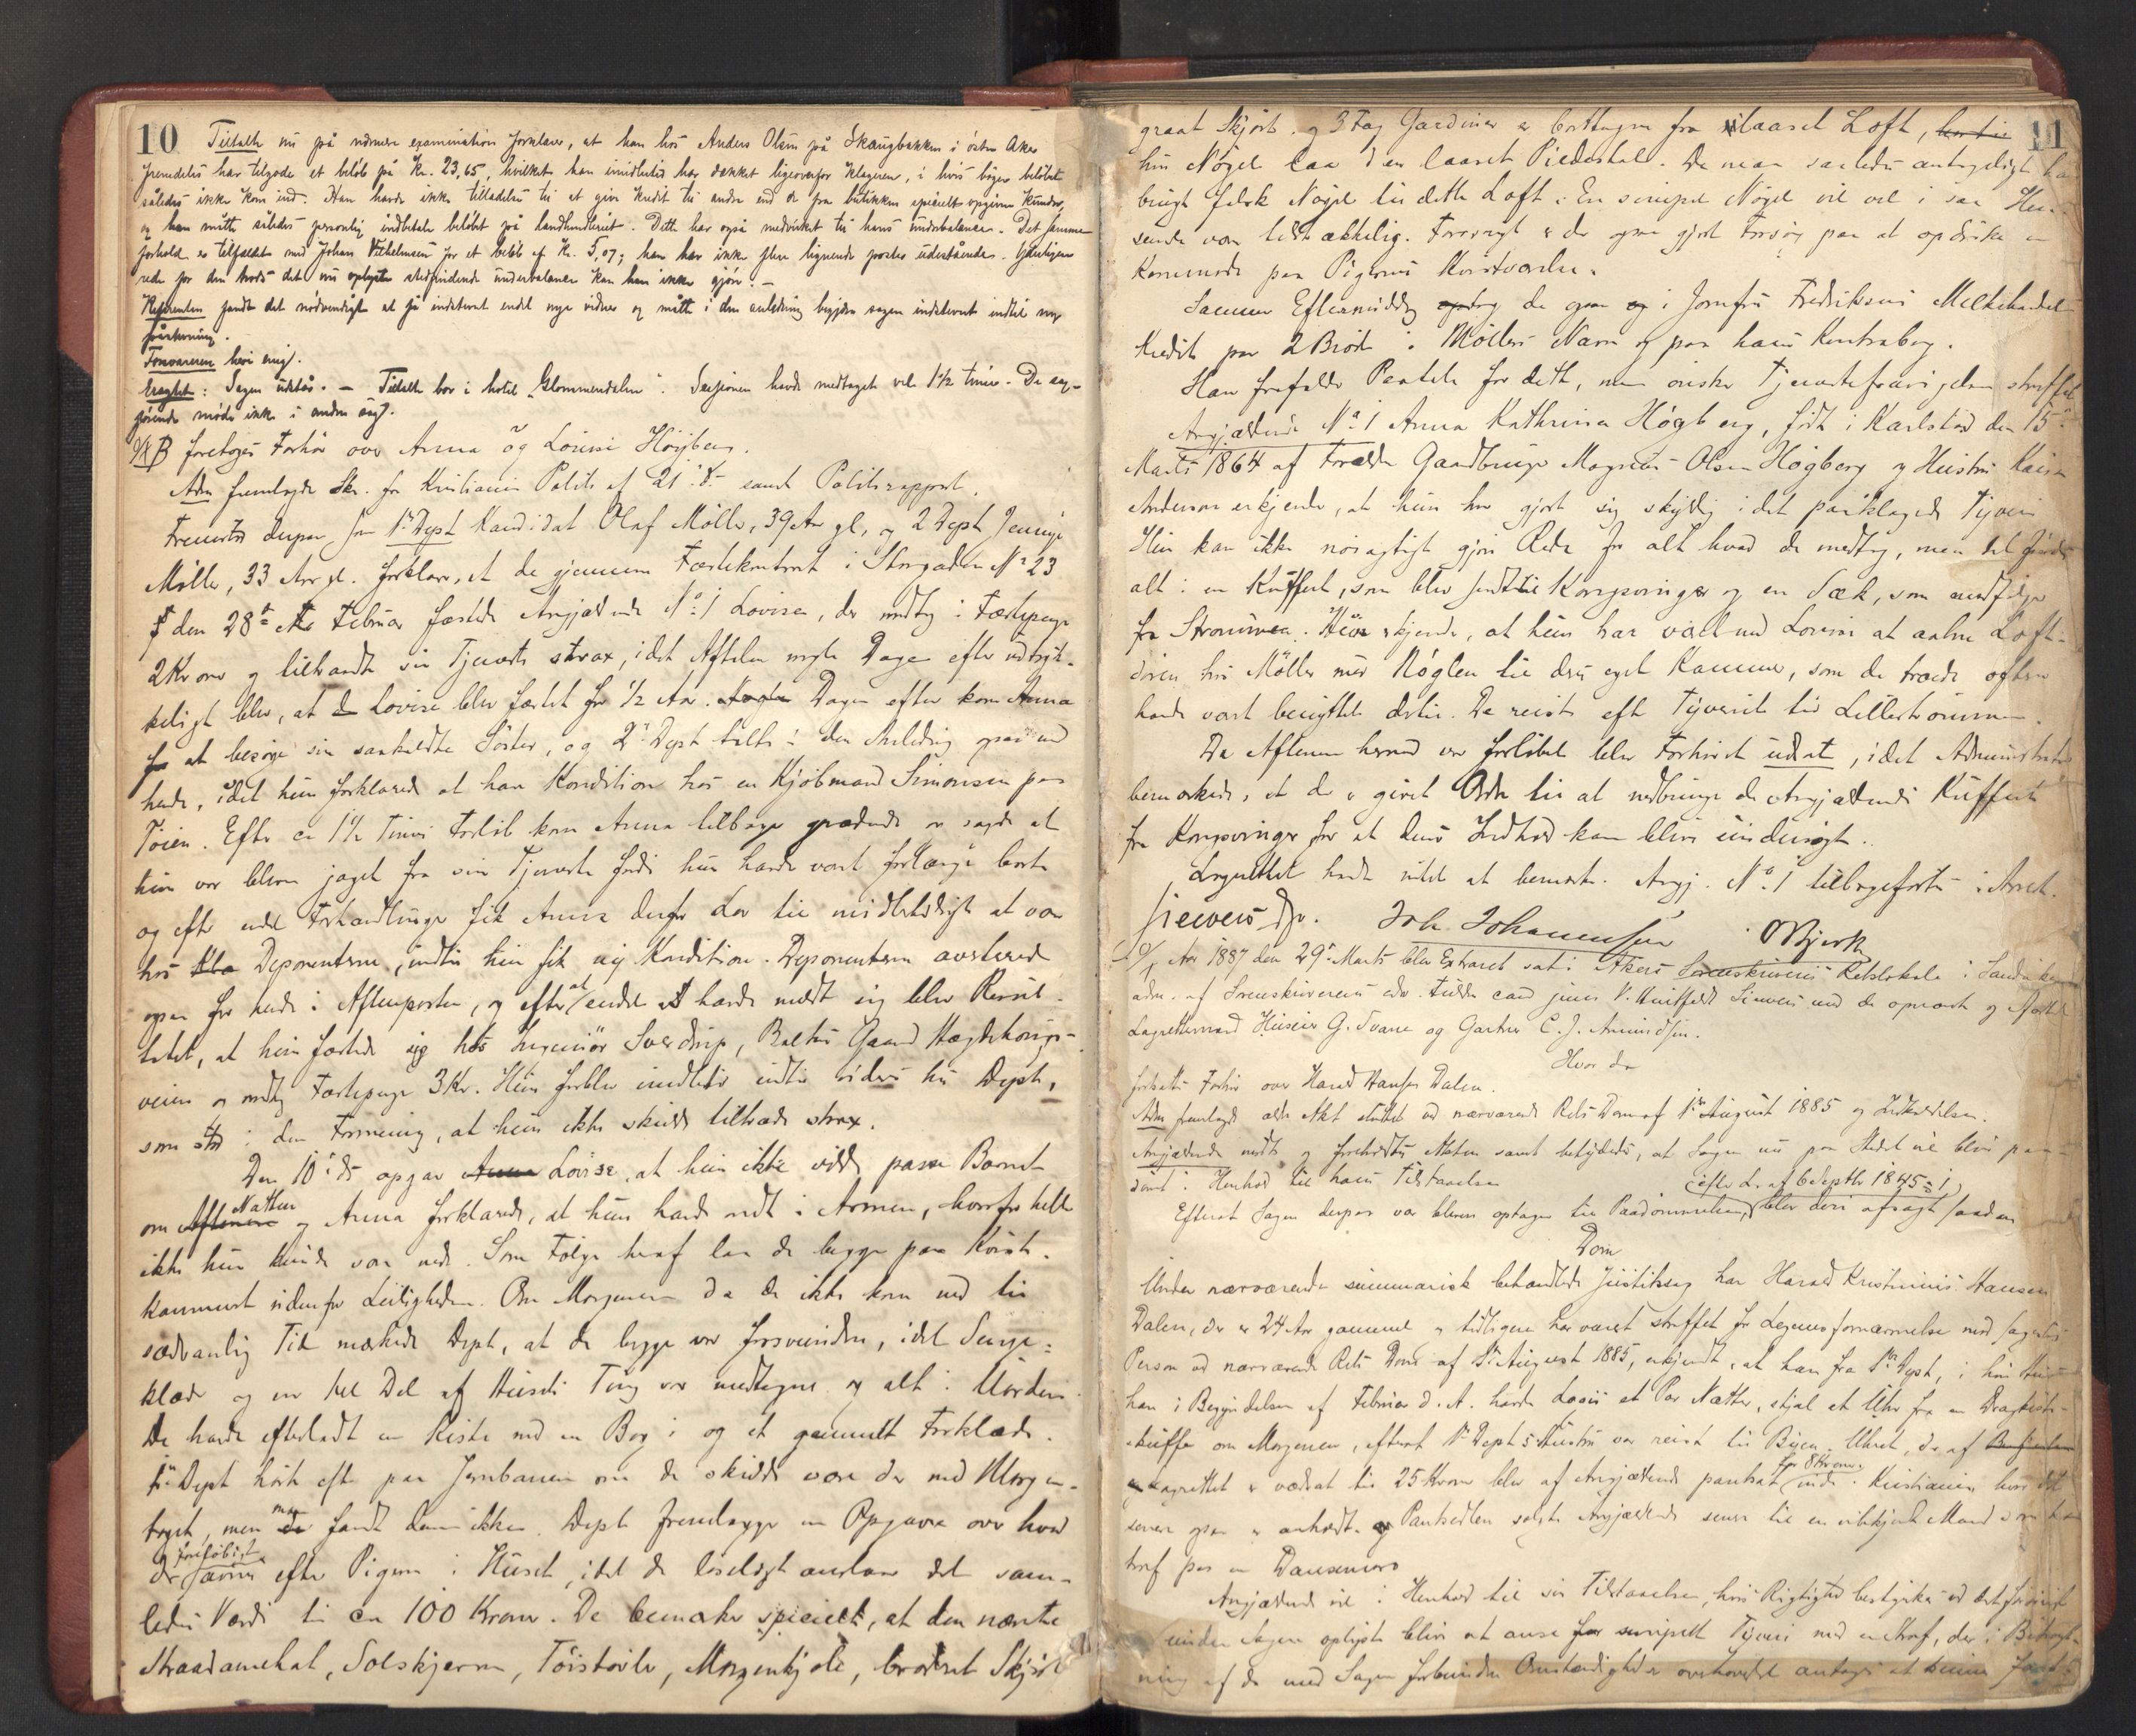 10
Tiltalte nu på nærmere examination forklarer, at han hos Anders Olsen på Skaugbakken i østre Aker
fremdeles har tilgode et beløb på Kr. 23,65, hvilket han imidlertid har dækket ligeoverfor klageren, i hvis bøger beløbet
således ikke kom ind. Han havde ikke tilladelse til at give kredit til andre end de fra butikken specielt opgivne kunder,
og han måtte således personlig indbetale beløbet på landhandleriet. Dette har også medvirket til hans underbalance. Det samme
forhold er tilfældet med Johan Vilhelmsen for et beløb af Kr. 5,07; han har ikke flere lignende poster udestående. Yderligere
rede for den trods det nu oplyste stedfindende underbalance kan han ikke gjøre. —
Referenten fandt det nødvendigt at få indstevnt endel nye vidner og måtte i den anledning begjære sagen
Forsvareren heri enig.
Eragtet: Sagen udstår. — Tiltalte bor i hotel "Glommendalen". Sessionen havde medtaget vel 1½ time. De sag-
givende møder ikke i anden sag.
B foretoges Forhør over Anna og Lovise Høgberg.
Adm fremlagde Skr. fra Kristiania Politi af 21 samt Politirapport.
Fremstod derpaa som 1ste Dept Kandidat Olaf Møller, 39 Aar gl., og 2 Dept Jenny
Møller, 33 Aar gl. forklarer, at de gjennem Fæstekontoret i Storgaden No 23
den 28de Februar fæstede Angjældende No 1 Lovise, der modtog i Fæstepenge
2 Kroner og tiltraadte sin Tjeneste strax, idet Aftalen nogle Dage efter udtryk-
keligt blev, at Lovise blev fæstet for ½ Aar. Dagen efter kom Anna
for at besøge sin saakaldte Søster, og 2n Dept talte i den Anledning ogsaa med
hende, idet hun forklarede at have Kondition hos en Kjøbmand Simonsen paa
Tøien. Efter ca 1½ Times Forløb kom Anna tilbage grædende og sagde at
hun var bleven jaget fra sin Tjeneste fordi hun havde været forlænge borte
og efter endel Forhandlinger fik Anna derfor Lov til midlertidigt at være
hos Deponenterne, indtil hun fik ny Kondition. Deponenterne averterede
ogsaa for hende i Aftenposten, og efter at endel havde meldt sig blev Resul-
tatet, at hun fæstede sig hos Ingeniør Sverdrup, Balthers Gaard Hægdehaugs-
veien og modtog Fæstepenge 3 Kr. Hun forblev imidlertid indtil videre hos Dept,
som stod i den Formening, at hun ikke skulde tiltræde strax.
Den 10de ds opgav Lovise, at hun ikke vilde passe Barnet
om Natten og Anna forklarede, at hun havde ondt i Armen, hvorfor heller
ikke hun kunde være nede. Som Følge heraf laa de begge paa Kvist-
kammeret udenfor Leiligheden. Om Morgenen da de ikke kom ned til
sædvanlig Tid mærkede Dept, at de begge var forsvunden, idet Senge-
klæder og en hel Del af Husets Tøy var medtagne og alt i Uorden
De havde efterladt en Kiste med en Bog i og et gammelt Forklæde.
1n Dept hørte efter paa Jernbanen om de skulde være der med Morgen-
toget, men man fandt dem ikke. Dept fremlægger en Opgave over hvad
der foreløbigt savnes efter Pigerne i Huset, idet de løseligt anslaar det sam-
lede Værdi til ca 100 Kroner. De bemærker specielt, at den nævnte
Straadamehat, Solskjærm, Tøistøvle, Morgenkjole, broderet Skjørt
11
graat Skjørt og 3 Fag Gardiner er borttagne fra aflaaset Loft,
hvis Nøgel laa i en laaset Piedestal. De maa saaledes antageligt have
brugt falsk Nøgel til dette Loft. En simpel Nøgel vil vel i saa Hen-
seende være tilstrækkelig. Forøvrigt er der ogsaa gjort Forsøg paa at opdirke en
Kommode paa Pigernes Kvistværelse.
Samme Eftermiddag tog de ogsaa i Jomfru Fredriksens Melkehandel
Kredit paa 2 Brød i Møllers Navn og paa hans Kontrabog.
Han frafalder Paatale for dette, men ønsker Tjenestefravigelsen straffet
Angjældende No 1 Anna Kathrina Høgberg, født i Karlstad den 15de
Marts 1864 af Forældre Gaardbruger Magnus Olsen Høgberg og Hustru Kaisa
Anderson erkjender, at hun har gjort sig skyldig i det paaklagede Tyveri
Hun kan ikke nøiagtigt gjøre Rede for alt hvad de medtog, men det findes
alt i en Kuffert, som blev sendt til Kongsvinger og en Sæk, som medfølger
fra Strømmen. Hun erkjender, at hun har været med Lovise at aabne Loft-
døren hos Møller med Nøglen til deres eget Kammer, som de troede oftere
havde været benyttet dertil. De reiste efter Tyveriet til Lillestrømmen.
Da Aftenen herved var forløbet blev Forhøret udsat, idet Administrator
bemærkede, at der er givet Ordre til at nedbringe de Angjældendes Kuffert
fra Kongsvinger for at dens Indhold kan blive undersøgt.
Lagrettet havde intet at bemærke. Angj. No 1 tilbageførtes i Arrest.
Sievers Joh. Johannessen O Bjerk
Aar 1887 den 29de Marts blev Extraret sat i Akers Sorenskriveris Retslokale i Sandviken
adm. af Sorenskriverens edsv. Fuldm. cand juris V. Huitfeldt Sievers med de opnævnte og
Lagrettemænd Huseier G. Svane og Gartner C. J. Amundsen.
Hvor da
fortsattes Forhør over Harald Hansen Dalen.
Adm fremlagde ældre Akt sluttet ved nærværende Rets Dom af 1ste August 1885 og Indkaldelse.
Angjældende mødte og foreholdtes Akten samt betydedes, at Sagen nu paa Stedet vil blive paa-
dømt i Henhold til hans Tilstaaelse
Efterat Sagen derpaa var bleven optagen til Paadømmelse, efter L. af 6 Septbr 1845 § 1, blev deri afsagt saadan
Dom
Under nærværende summarisk behandlede Justitssag har Harald Kristinius Hansen
Dalen, der er 24 Aar gammel og tidligere har været straffet for Legemsfornærmelse mod sagesløs
Person ved nærværende Rets Dom af 1ste August 1885, erkjendt, at han fra 1ste Dept, i hvis Hus
han i Begyndelsen af Februar d. A. havde Logis et Par Nætter, stjal et Uhr fra en Dragkiste-
skuffe om Morgenen, efterat 1n Depts Hustru var reist til Byen. Uhret, der af
Lagrettet er værdsat til 25 Kroner blev af Angjældende pantsat for 8 Kroner inde i Kristiania hvor det
senere ogsaa er anholdt. Pantsedlen solgte Angjældende senere til en ubekjendt Mand som han
traf paa en Dansemoro
Angjældende vil i Henhold til sin Tilstaaelse, hvis Rigtighed bestyrkes ved det forøvrigt
under Sagen oplyste blive at anse for simpelt Tyveri med en Straf, der i Betragt-
ning af de med Sagen forbundne Omstændigheder overhovedet antages at kunne